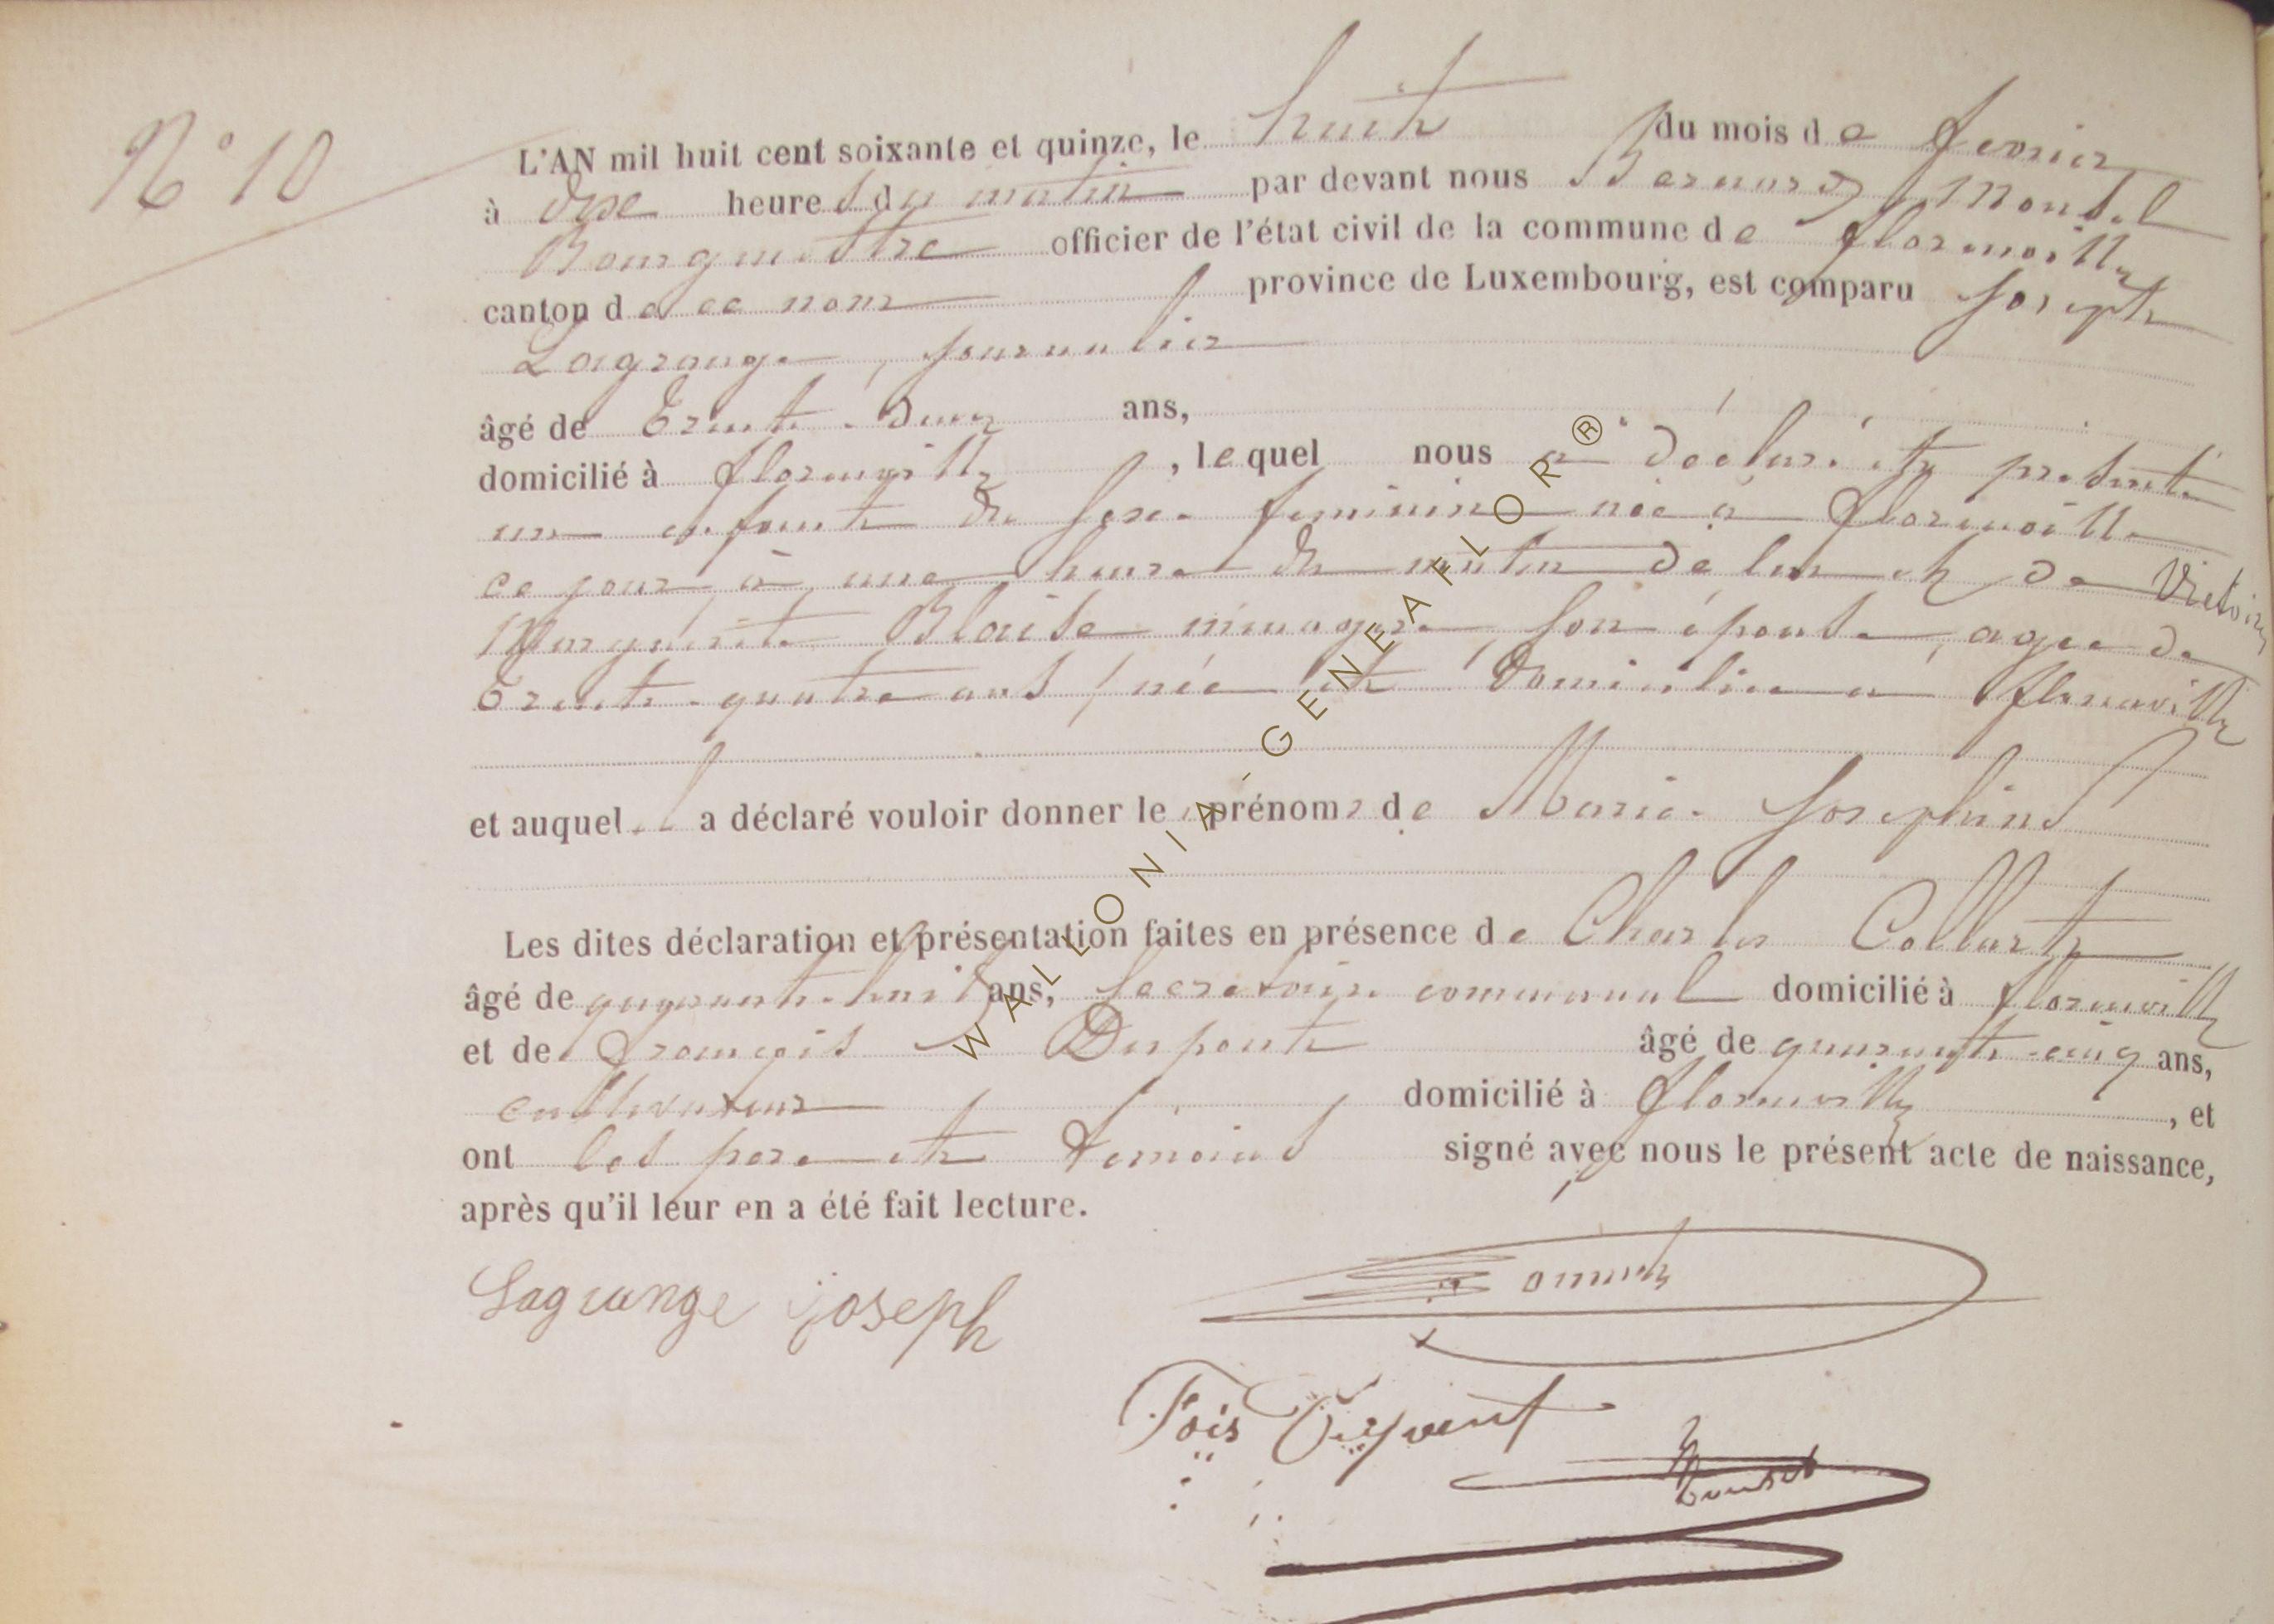 N° 10
L'AN mil huit cent soixante et quinze, le huit du mois de fevrier
à dix heures du matin par devant nous Bernard Monsel
Bourgmestre officier de l'état civil de la commune de florenville
canton de ce nom province de Luxembourg, est comparu Joseph
Lagrange, journalier
âgé de trente-deux ans,
domicilié à florenville, lequel nous a déclaré et presenté
un enfant du sexe feminin née à florenville
ce jour, à une heure du matin de lui et de Victoire
Marguerite Blaise ménagère, son épouse, agee de
trente-quatre ans, née et domiciliee a florenville
et auquel il a déclaré vouloir donner les prénoms de Marie Josephine
Les dites déclaration et présentation faites en présence de Charles Collart
âgé de quarante-huit ans, secretaire communal domicilié à florenville
et de François Dupont âgé de quarante-cinq ans,
cultivateur domicilié à florenville, et
ont les pere et temoins signé avec nous le présent acte de naissance,
après qu'il leur en a été fait lecture.
Lagrange joseph
Fois Dupont
Monsel
WALLONIA-GENEAFLOR®